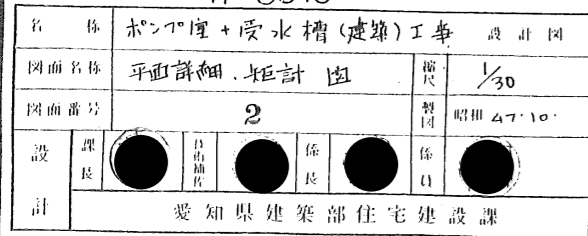 名称 ポンプ室+受水槽(建築)工事 設計図
図面名称 平面詳細.矩計図 縮尺 1/30
図面番号 2 製図 昭和47.10.
設計 課長 技術補佐 係長 係員
愛知県建築部住宅建設課